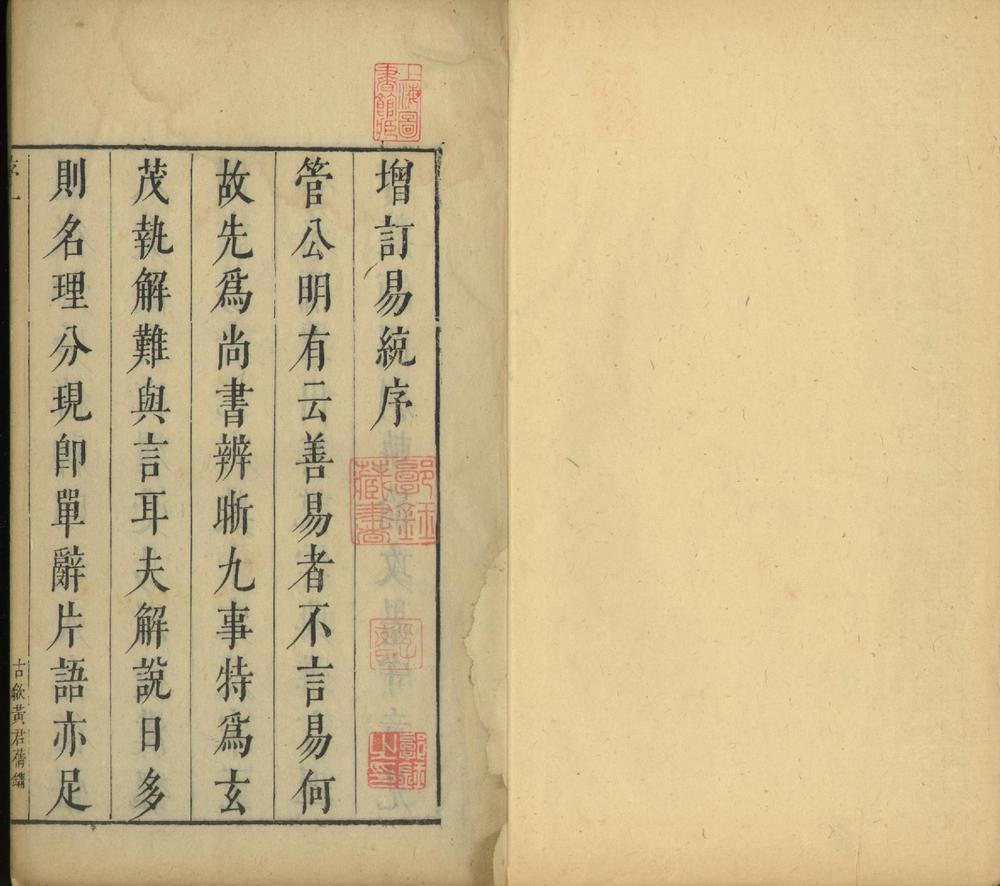 增訂易統序
管公明有云善易者不言易何
故先爲尚書辨晰九事特爲玄
茂執解難與言耳夫解說日多
則名理分現卽單辭片語亦足
序一
古歙黃君蒨鐫
上海圖
書館藏